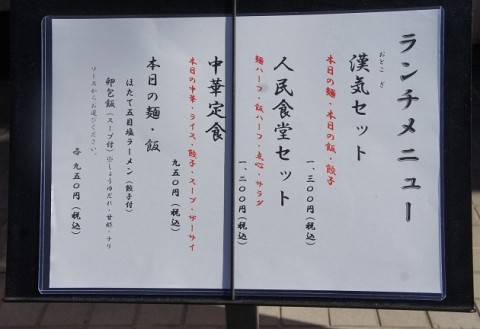 ランチメニュー
おとこ ぎ
漢気セット
本日の麺・本日の飯・餃子
一、三〇〇円(税込)
人民食堂セット
麺ハーフ・飯ハーフ・点心・サラダ
一、二〇〇円(税込)
中華定食
本日の中華・ライス・餃子・スープ・ザーサイ
九五〇円(税込)
本日の麺・飯
ほたて五目塩ラーメン(餃子付)
卵包飯(スープ付)※しょうゆだれ・甘酢・チリ
ソースからお選びください。
各 九五〇円(税込)